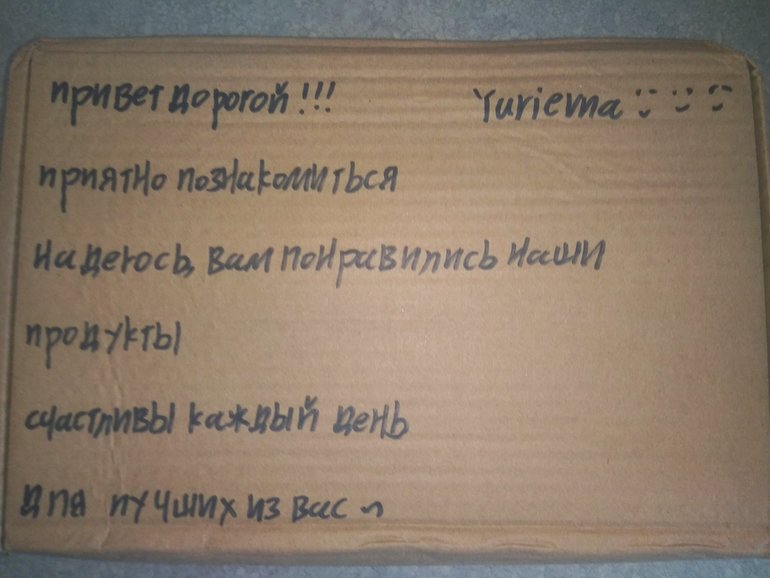 привет дорогой!!! Yurievna
приятно познакомиться
надеюсь, вам понравились наши
продукты
счастливы каждый день
для лучших из вас